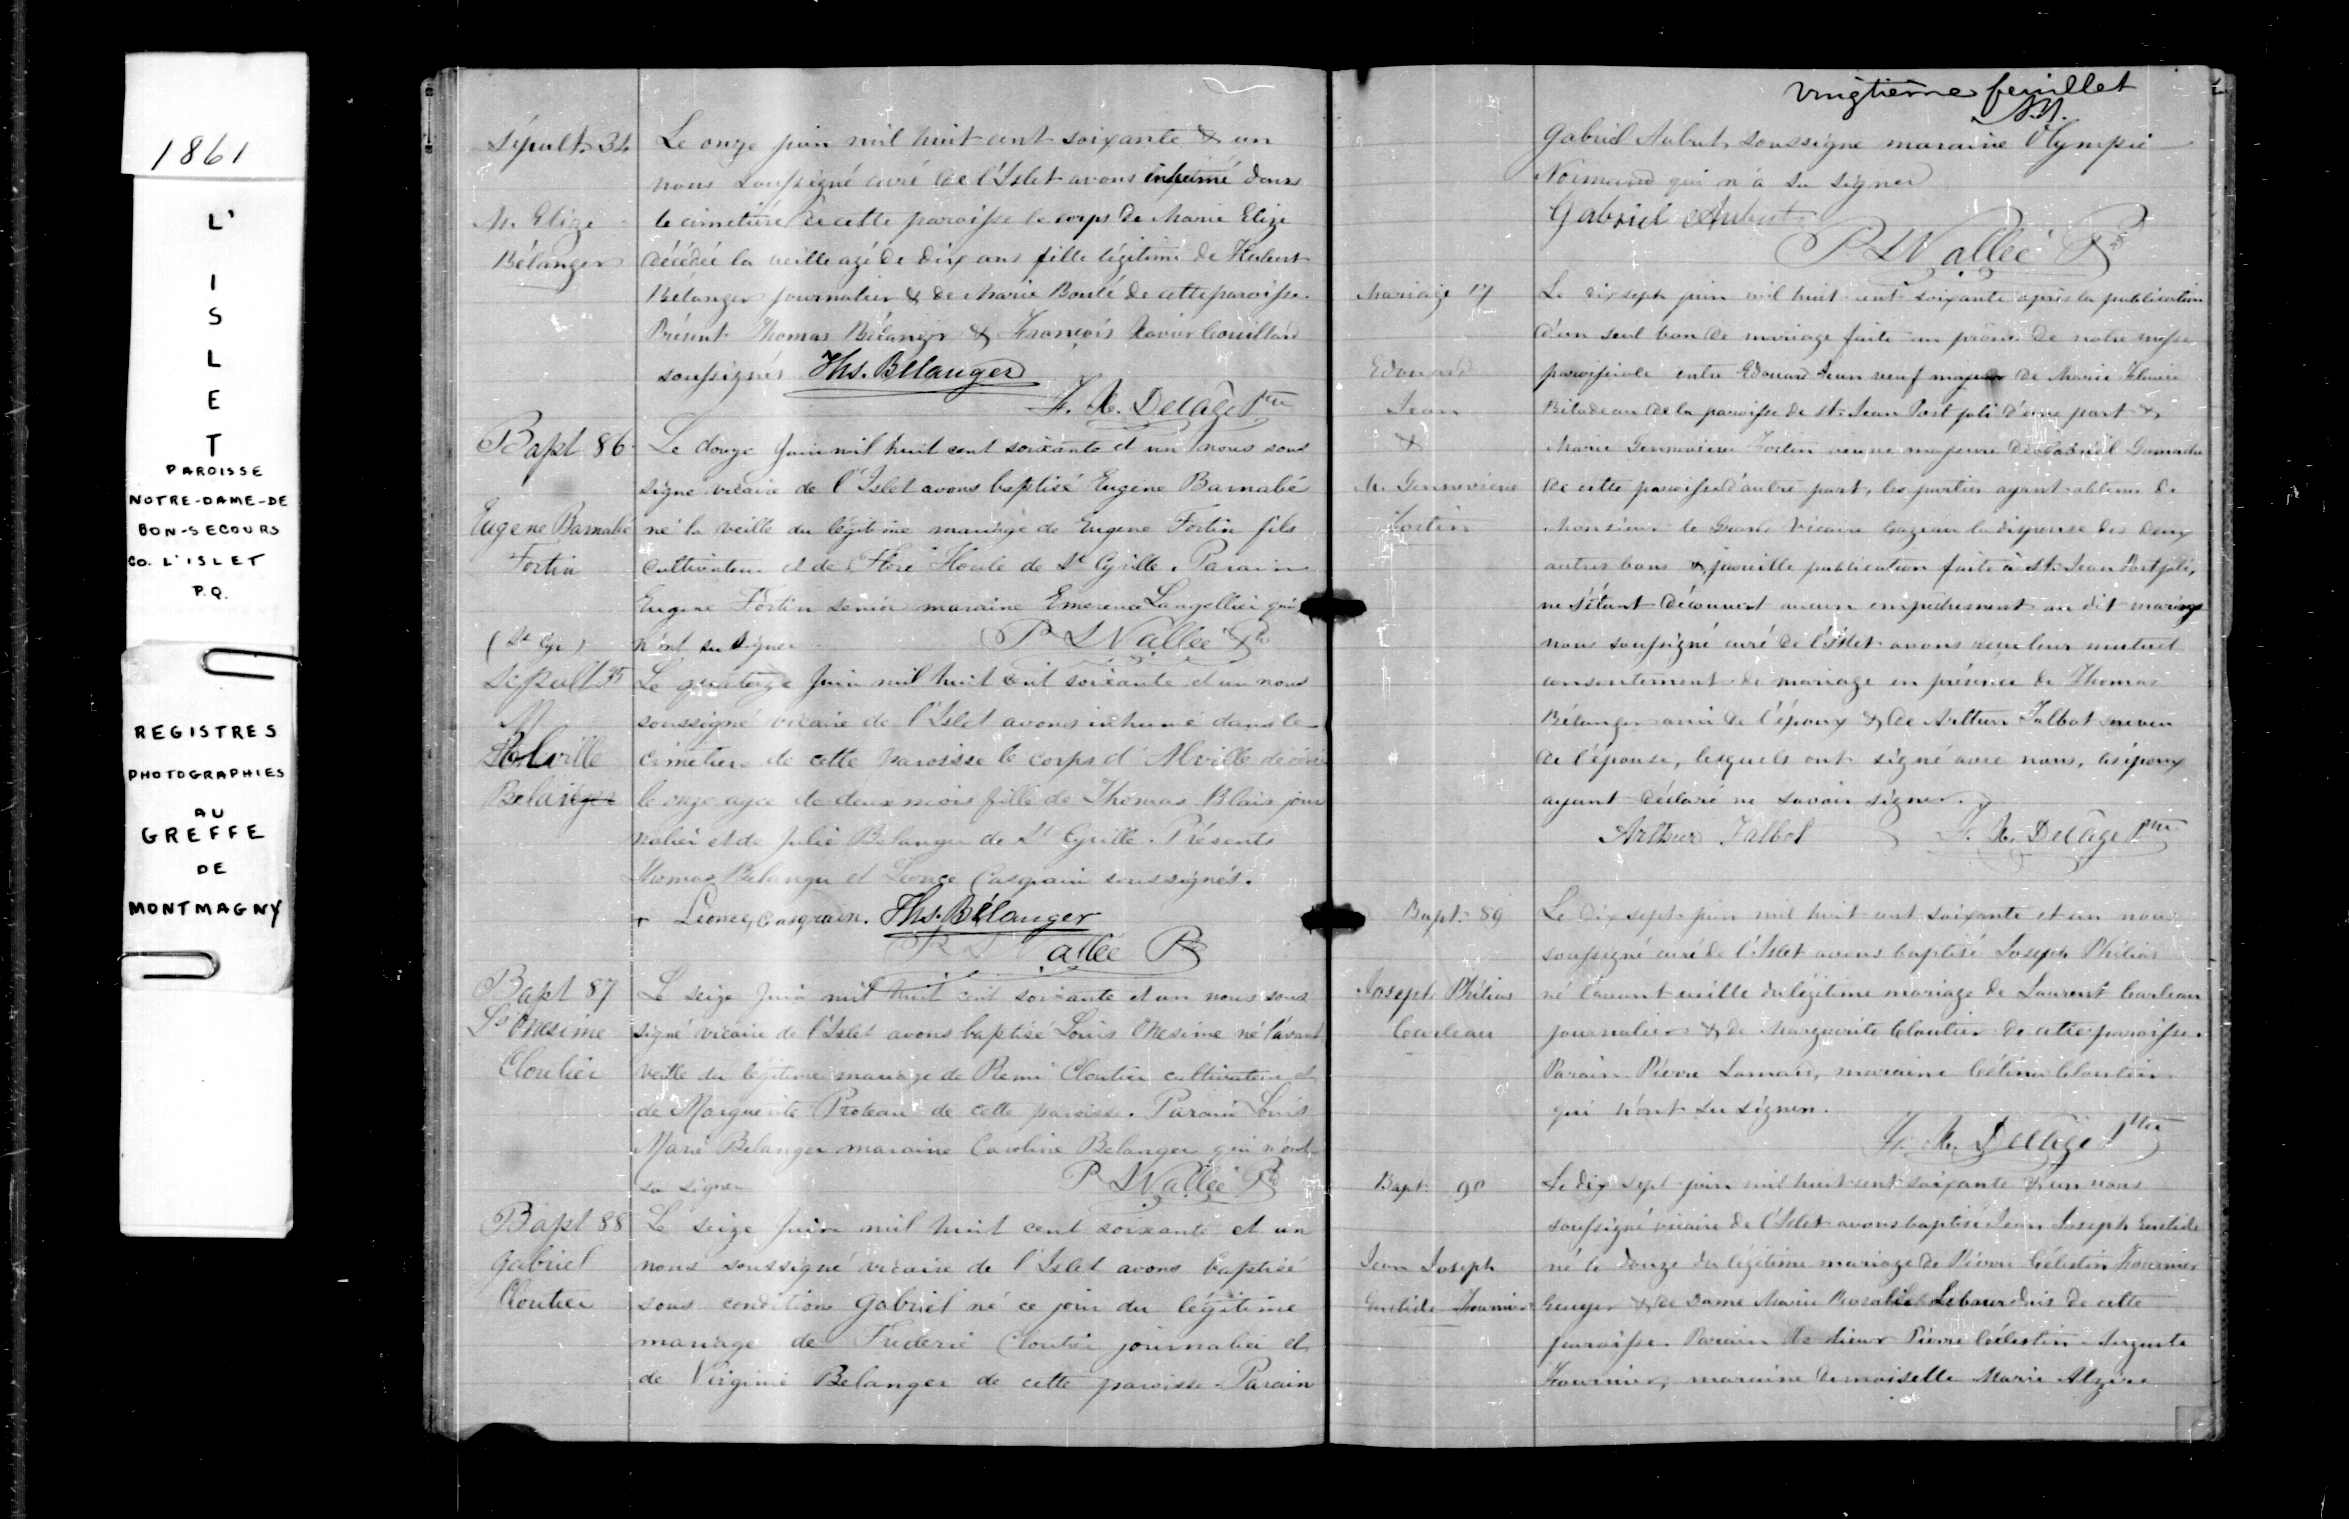 1861
L'
I
S
L
E
T
PAROISSE
NOTRE-DAME-DE
BON-SECOURS
CO. L'ISLET
P.Q.
REGISTRES
PHOTOGRAPHIES
AU
GREFFE
DE
MONTMAGNY
Sépult. 34
M. Elize
Bélanger
Le onze juin mil huit cent soixante & un
nous soussigné curé de l'Islet avons inhumé dans
le cimetière de cette paroisse le corps de Marie Elize
décédée la veille agé de dix ans fille légitime de Hubert
Bélanger journalier & de Marie Boulé de cette paroisse.
Présent Thomas Bélanger & François Xavier Couillard
soussignés Ths. Bélanger
F. X. Delâge Ptre
Bapt 86
Eugene Barnabé
Fortin
(St Cyr)
Le douze Juin mil huit cent soixante et un nous sous
signé vicaire de l'Islet avons baptisé Eugène Barnabé
né la veille du légitime mariage de Eugene Fortin fils
cultivateur et de Houle de St Cyrille. Parain
Eugene Fortin senior maraine Emerence Langellier qui
n'ont su signer P S Vallée Ptre
Sepult 35
M
Alville
Blais
Le quatorze Juin mil huit cent soixante et un nous
soussigné vicaire de l'Islet avons inhumé dans le
cimetiere de cette paroisse le corps d'Alville décédé
le onze agée de deux mois fille de Thomas Blais jour
nalier et de Julie Belanger de St Cyrille. Présents
Thomas Belanger et Léonce Casgrain soussignés.
Léonce Casgrain. Ths. Bélanger
P S Vallée Ptre
Bapt 87
Ls Onesime
Cloutier
Le seize Juin mil huit cent soixante et un nous sous
signé vicaire de l'Islet avons baptisé Louis Onesime né l'avant
veille du légitime mariage de Remi Cloutier cultivateur et
de Marguerite Proteau de cette paroisse. Parain Louis
Marie Belanger maraine Caroline Belanger qui n'ont
su signer P S Vallée Ptre
Bapt 88
Gabriel
Cloutier
Le seize Juin mil huit cent soixante et un
nous soussigné vicaire de l'Islet avons baptisé
sous condition Gabriel né ce jour du légitime
mariage de Frederic Cloutier journalier et
de Virginie Belanger de cette paroisse. Parain
vingtième feuillet
Gabriel Aubut soussigné maraine Olympie
Normand qui n'a su signer
Gabriel Aubut
P S Vallée Ptre
Mariage 17
Edouard
Jean
&
M. Genevieve
Fortin
Le dix sept juin mil huit cent soixante après la publication
d'un seul ban de mariage faite au prône de notre messe
paroissiale entre Edouard Jean veuf majeur de Marie
Béladeau de la paroisse de St. Jean Port joli d'une part &
Marie Fortin veuve majeure de Gabriel
de cette paroisse d'autre part, les parties ayant obtenu de
Monsieur le Grand Vicaire Cazeau la dispense des deux
autres bans & pareille publication faite à St. Jean Port joli,
ne s'étant découvert aucun empêchement au dit mariage
nous soussigné curé de l'Islet avons reçu leur mutuel
consentement de mariage en présence de Thomas
Bélanger ami de l'époux & de Arthur Talbot neveu
de l'épouse, lesquels ont signé avec nous, les époux
ayant déclaré ne savoir signer.
Arthur Talbot F. X. Delâge Ptre
Bapt. 89
Joseph Philias
Carleau
Le dix sept juin mil huit cent soixante et un nous
soussigné curé de l'Islet avons baptisé Joseph Philias
né l'avant veille du légitime mariage de Laurent Carleau
journalier & de Marguerite Cloutier de cette paroisse.
Parain Pierre Lamarre, maraine Célina Cloutier
qui n'ont su signer.
F. X. Delâge Ptre
Bapt. 90
Jean Joseph
Euclide Fournier
Le dix sept juin mil huit cent soixante & un nous
soussigné vicaire de l'Islet avons baptisé Jean Joseph Euclide
né le douze du légitime mariage de Pierre Célestin Fournier
Ecuyer & de Dame Marie Rosalie Lebourdais de cette
paroisse. Parain le sieur Pierre Célestin Auguste
Fournier, maraine Demoiselle Marie Alzire